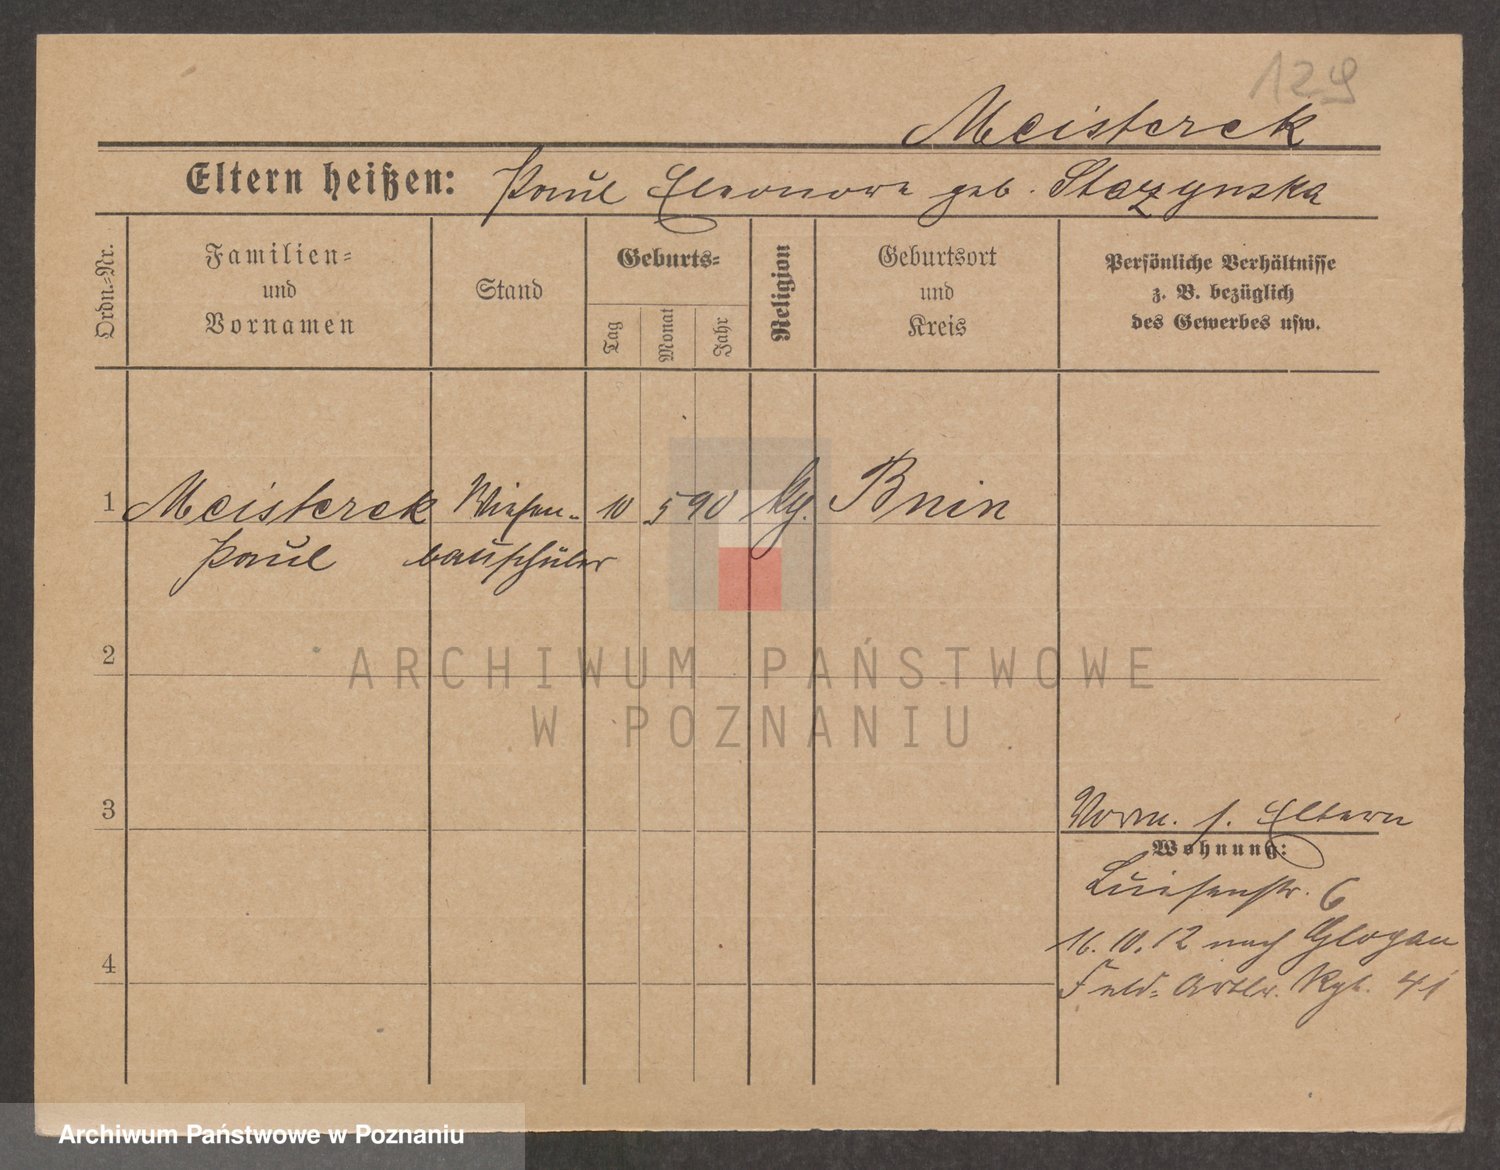 129
Meisterek
Eltern heißen: Paul Eleonore geb. Starzynska
Ordn.-Nr.
Familien-
und
Vornamen
Stand
Geburts-
Tag
Monat
Jahr
Religion
Geburtsort
und
Kreis
Persönliche Verhältnisse
z. B. bezüglich
des Gewerbes usw.
1 Meisterek Wiesen- 10 5 90 Bnin
Paul bauschüler
2
ARCHIWUM PAŃSTWOWE
W POZNANIU
3
s. Eltern
Wohnung:
Luisenstr. 6
16.10.12 nach Glogau
4
Feld-Artlr. Rgt. 41
Archiwum Państwowe w Poznaniu